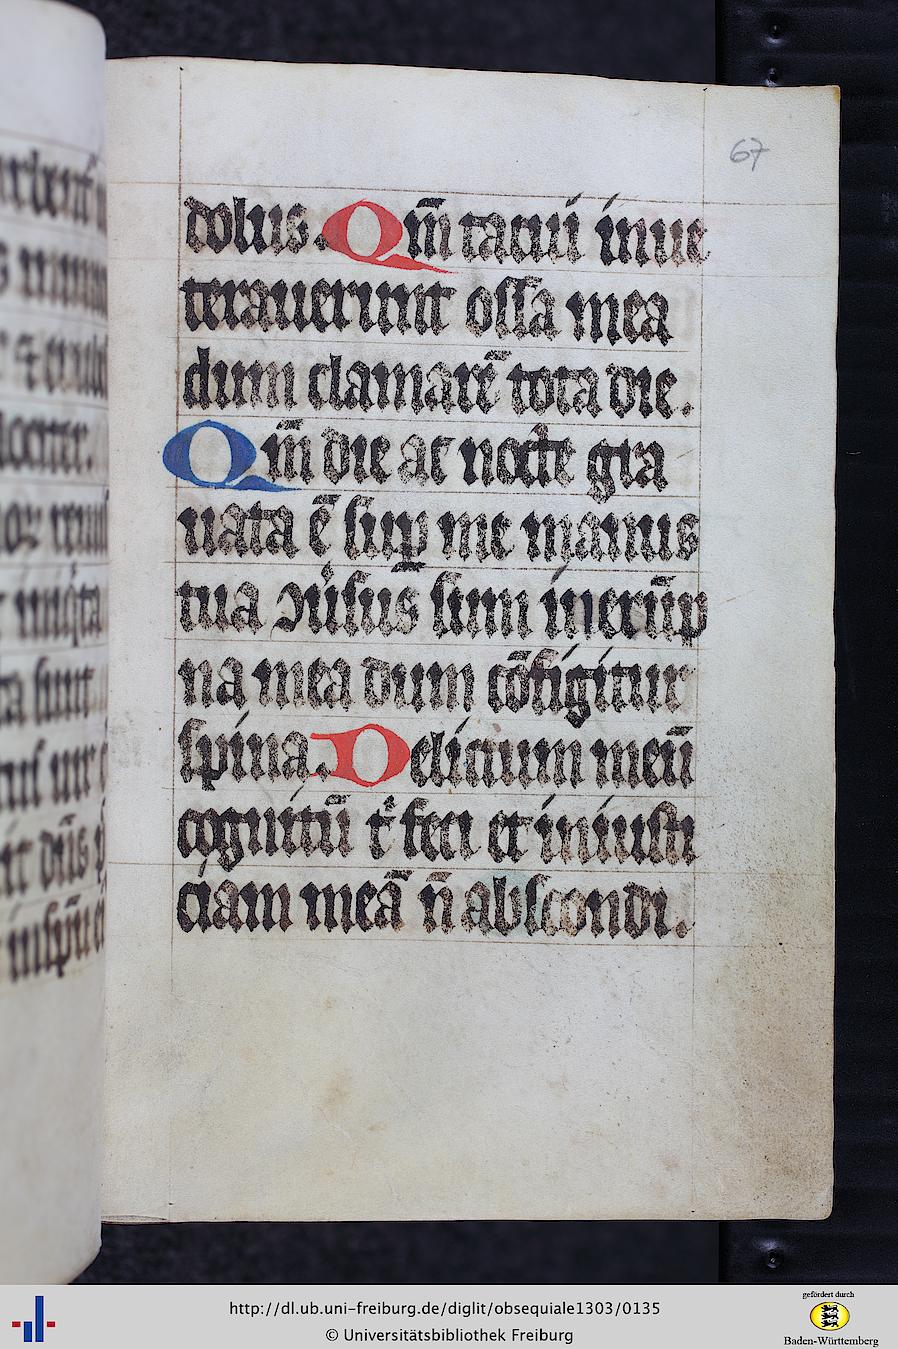 67
dolus. Qm̄ tacui inue
terauerunt ossa mea
dum clamarē tota die.
Qm̄ die ac nocte gra
uata ē sup me manus
tua ꝯuͥsus̄ sum in erūp
na mea dum cōfigitur
spina. Delictum meū
cognitū tͥ feci et iniusti
ciam meā n̄ abscondi.
http://dl.ub.uni-freiburg.de/diglit/obsequiale1303/0135
© Universitätsbibliothek Freiburg
gefördert durch
Baden-Württemberg